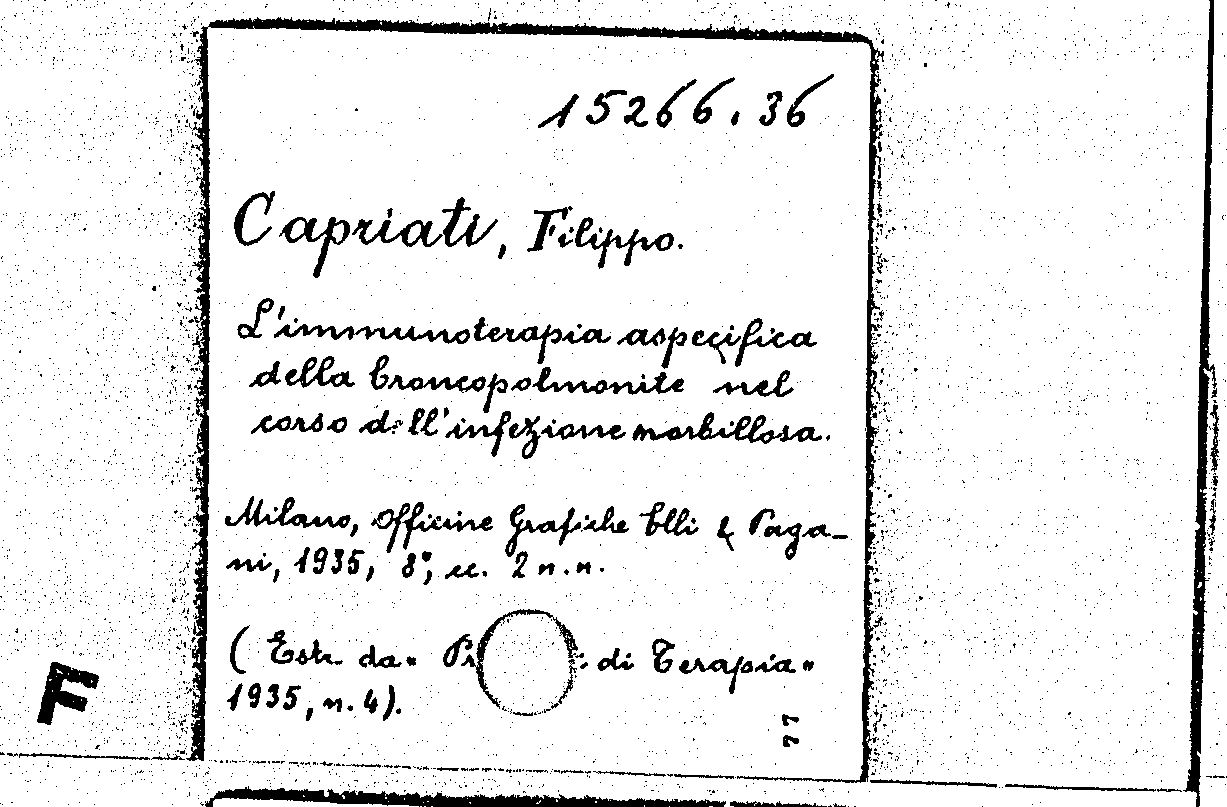 15266.36
Capriati, Filippo.
L'immunoterapia aspecifica
della broncopolmonite nel
corso dell'infezione morbillosa.
Milano, Officine Grafiche Elli & Paga-
ni, 1935, 8°, cc. 2 n.n.
( Estr. da " di Terapia"
1935, n. 4).
77
F